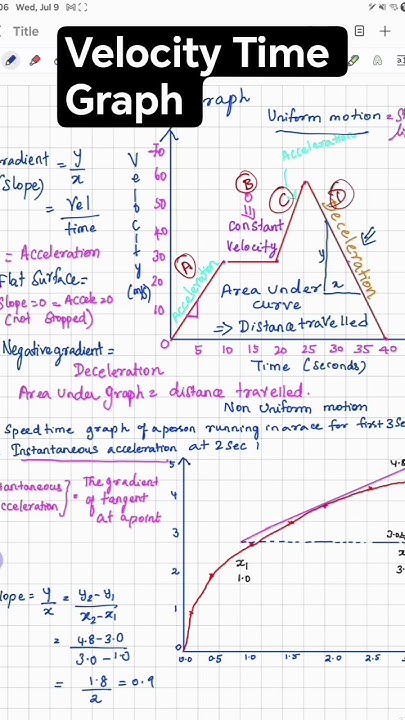 06 Wed, Jul 9
Title
Velocity Time
Graph
graph
Uniform motion =
radient = y/x
(Slope)
= Vel/time
= Acceleration
Flat Surface =
Slope=0 = Accele=0
(not stopped)
Negative gradient =
Deceleration
Velocity (m/s)
70
60
50
40
30
20
10
0
5 10 15 20 25 30 35 40
Time (seconds)
A
Acceleration
B
Constant
velocity
Acceleration
C
D
Deceleration
y
x
Area under
curve
=> Distance travelled
Area under graph = distance travelled.
Non Uniform motion
Speed time graph of a person running in a race for first 3 Se
Instantaneous acceleration at 2 Sec
stantaneous
cceleration } = The gradient
of tangent
at a point
lope = y/x = y2-y1/x2-x1
= 4.8-3.0/3.0-1.0
= 1.8/2 = 0.9
5
4
3
2
1
0
0.0 0.5 1.0 1.5 2.0 2.5
4.8
x1
1.0
3.0
3.